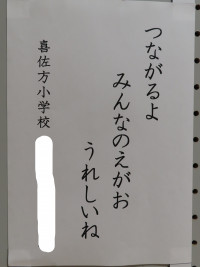 つながるよ
みんなのえがお
うれしいね
喜佐方小学校